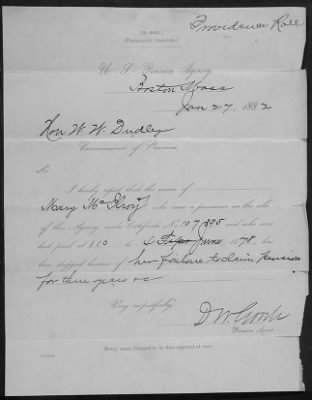 Providence Roll
U. S. Pension Agency,
Boston Mass
Jan 27, 1882
Hon W. W. Dudley
Commissioner of Pensions.
Sir:
I hereby report that the name of
Mary McElroy who was a pensioner on the rolls
of this Agency, under Certificate No. 107,895 and who was
last paid at $10 to 4 June, 1878, has
been dropped because of her failure to claim Pension
for three years
Very respectfully,
D W Gooch
Pension Agent.
Every name dropped to be thus reported at once.